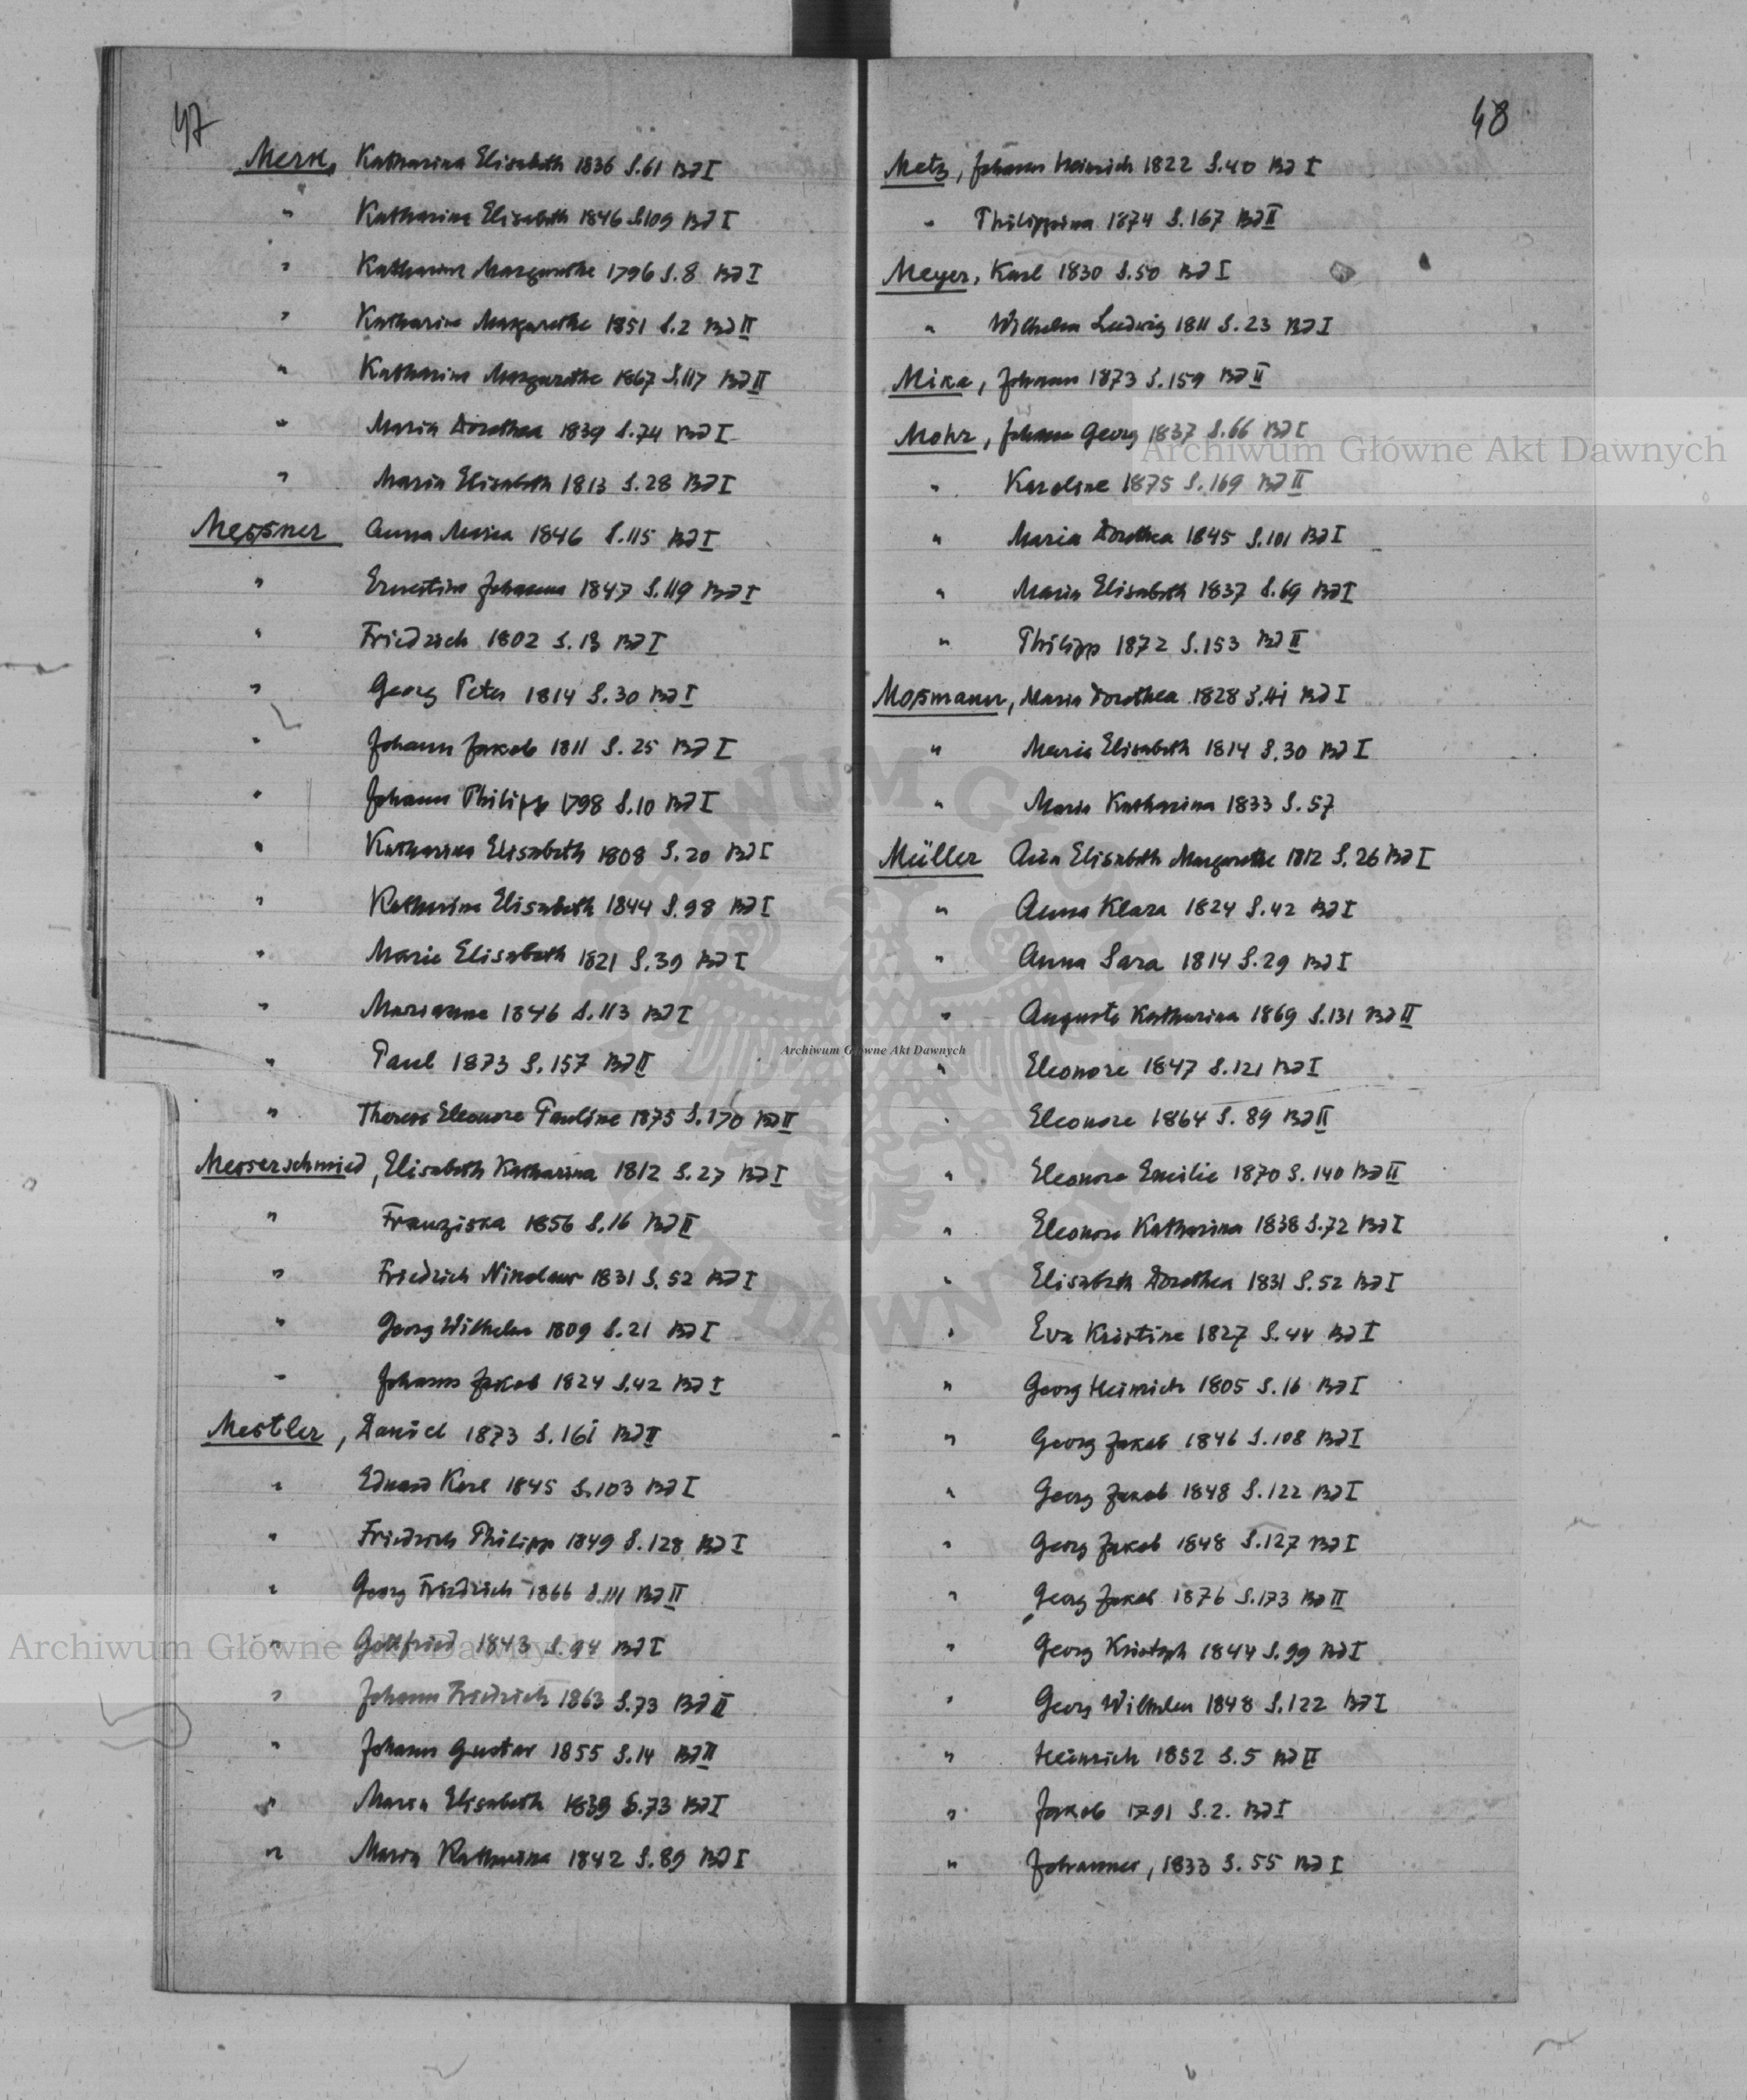 47
Merk, Katharina Elisabeth 1836 S.61 Bd I
" Katharina Elisabeth 1846 S.109 Bd I
" Katharina Margarethe 1796 S.8 Bd I
" Katharina Margarethe 1851 S.2 Bd II
" Katharina Margarethe 1867 S.117 Bd II
" Maria Dorothea 1839 S.74 Bd I
" Maria Elisabeth 1813 S.28 Bd I
Messner Anna Maria 1846 S.115 Bd I
" Ernestine Johanna 1847 S.119 Bd I
" Friedrich 1802 S.13 Bd I
" Georg Peter 1814 S.30 Bd I
" Johann Jakob 1811 S.25 Bd I
" Johann Philipp 1798 S.10 Bd I
" Katharina Elisabeth 1808 S.20 Bd I
" Katharina Elisabeth 1844 S.98 Bd I
" Marie Elisabeth 1821 S.39 Bd I
" Marianna 1846 S.113 Bd I
" Paul 1873 S.157 Bd II
" Therese Eleonore Pauline 1875 S.170 Bd II
Messerschmied, Elisabeth Katharina 1812 S.27 Bd I
" Franziska 1856 S.16 Bd II
" Friedrich Nikolaus 1831 S.52 Bd I
" Georg Wilhelm 1809 S.21 Bd I
" Johann Jakob 1824 S.42 Bd I
Mestler, Daniel 1873 S.161 Bd II
" Eduard Karl 1845 S.103 Bd I
" Friedrich Philipp 1849 S.128 Bd I
" Georg Friedrich 1866 S.111 Bd II
" Gottfried 1843 S.94 Bd I
" Johann Friedrich 1863 S.73 Bd II
" Johann Gustav 1855 S.14 Bd II
" Maria Elisabeth 1839 S.73 Bd I
" Maria Katharina 1842 S.89 Bd I
48
Metz, Johann Heinrich 1822 S.40 Bd I
" Philippina 1874 S.167 Bd II
Meyer, Karl 1830 S.50 Bd I
" Wilhelm Ludwig 1811 S.23 Bd I
Mika, Johann 1873 S.159 Bd II
Mohr, Johann Georg 1837 S.66 Bd I
" Karoline 1875 S.169 Bd II
" Maria Dorothea 1845 S.101 Bd I
" Maria Elisabeth 1837 S.69 Bd I
" Philipp 1872 S.153 Bd II
Moßmann, Maria Dorothea 1828 S. Bd I
" Maria Elisabeth 1814 S.30 Bd I
" Maria Katharina 1833 S.57
Müller Elisabeth Margarethe 1812 S.26 Bd I
" Anna Klara 1824 S.42 Bd I
" Anna Sara 1814 S.29 Bd I
" Auguste Katharina 1869 S.131 Bd II
" Eleonore 1847 S.121 Bd I
" Eleonore 1864 S.89 Bd II
" Eleonore Emilie 1870 S.140 Bd II
" Eleonore Katharina 1838 S.72 Bd I
" Elisabeth Dorothea 1831 S.52 Bd I
" Eva Kristine 1827 S.44 Bd I
" Georg Heinrich 1805 S.16 Bd I
" Georg Jakob 1846 S.108 Bd I
" Georg Jakob 1848 S.122 Bd I
" Georg Jakob 1848 S.127 Bd I
" Georg Jakob 1876 S.173 Bd II
" Georg Kristoph 1844 S.99 Bd I
" Georg Wilhelm 1848 S.122 Bd I
" Heinrich 1852 S.5 Bd II
" Jakob 1791 S.2. Bd I
" Johannes, 1833 S.55 Bd I
Archiwum Główne Akt Dawnych
Archiwum Główne Akt Dawnych
Archiwum Główne Akt Dawnych
ARCHIWUM GŁÓWNE AKT DAWNYCH